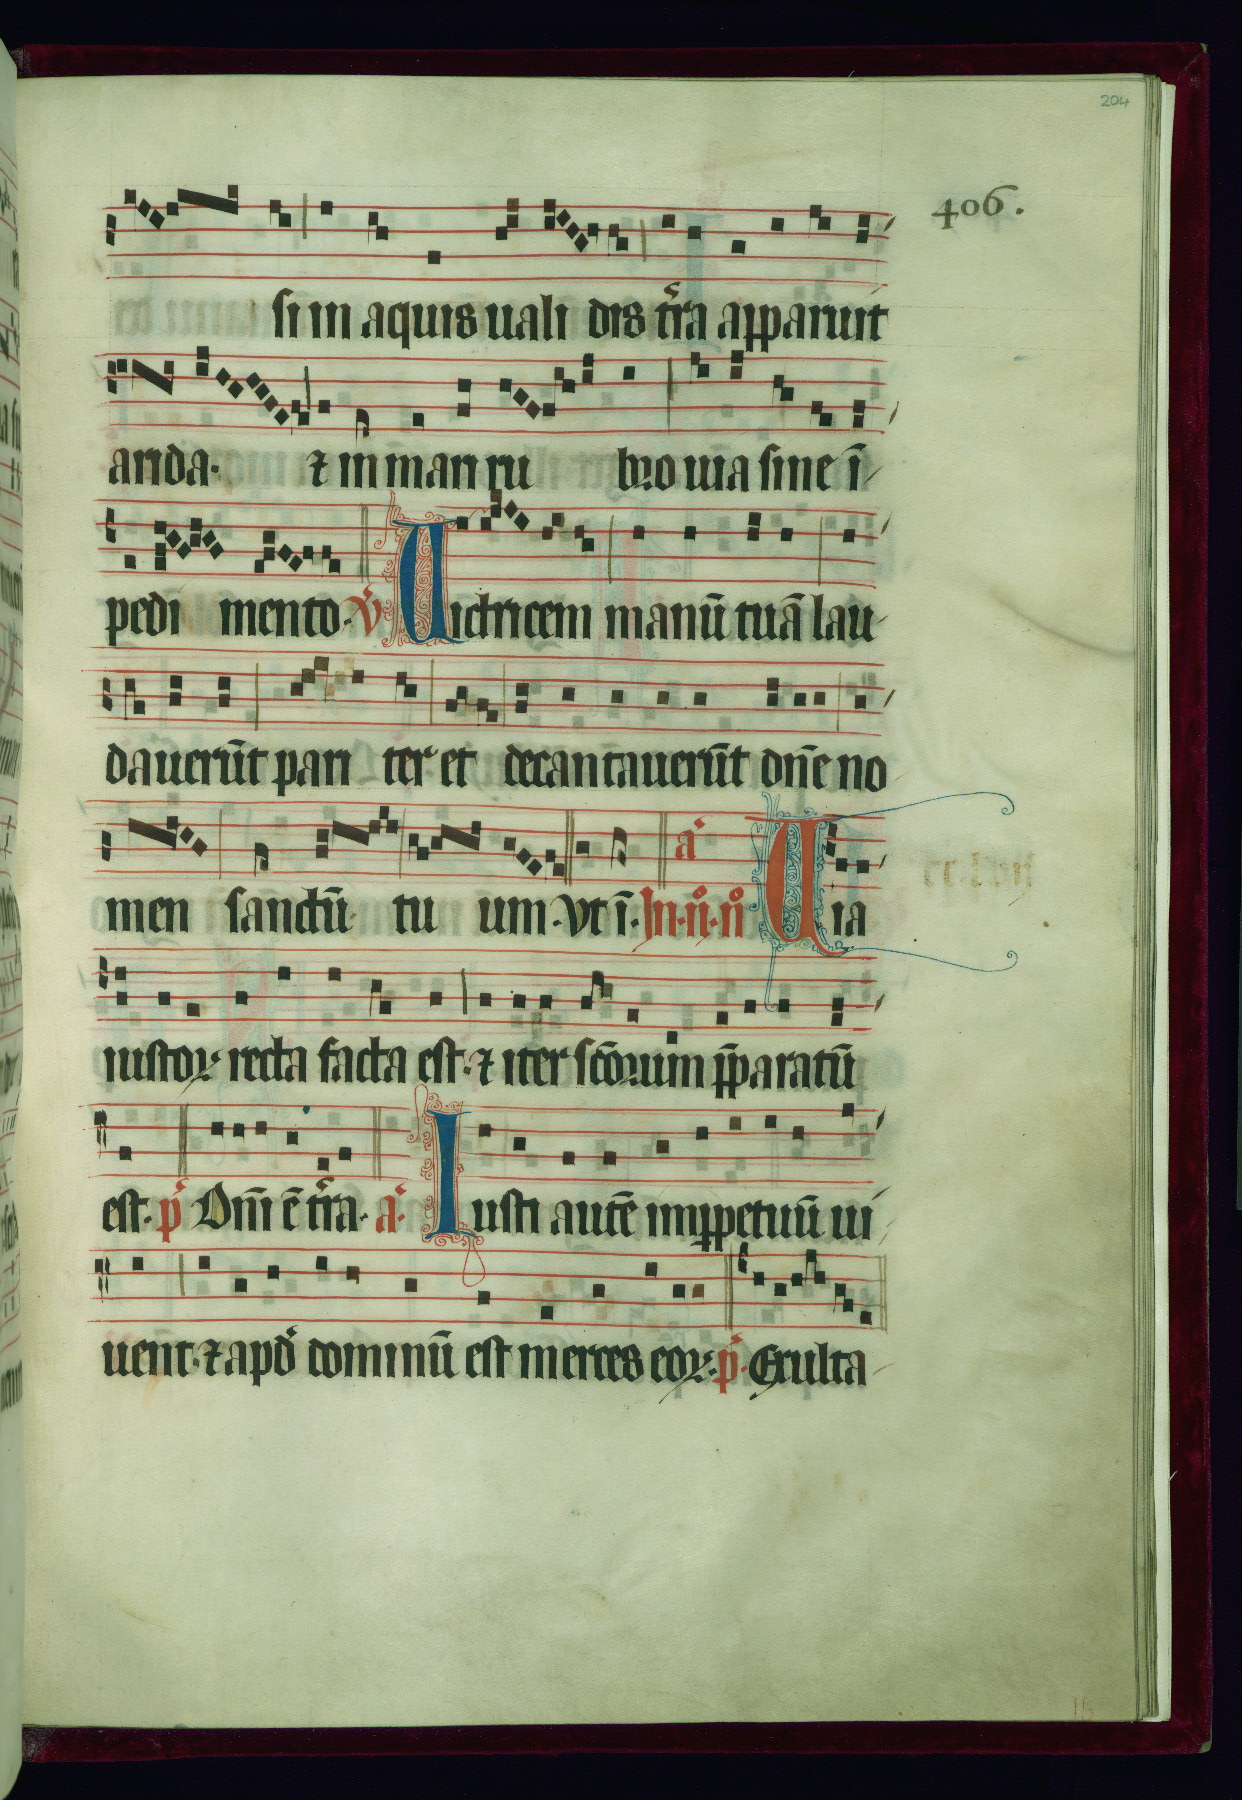 204
406.
si in aquis uali dis tr̃a apparuit
arida· ⁊ in mari ru bro uia sine ī
pedi mento· v̓ Uictricem manū tuā lau
dauerūt pari ter et decantauerūt dn̄e no
men sanctū tu um· Vt ī· In· ii̊· no̊ a̓ Uia
iustoꝝ recta facta est· ⁊ iter sc̄orum p̄paratū
est· p̓ Dn̄i ē tr̃a· a̓· Iusti autē imppetuū ui
uent· ⁊ apd̓ dominū est merces eoꝝ· p̓· Exulta